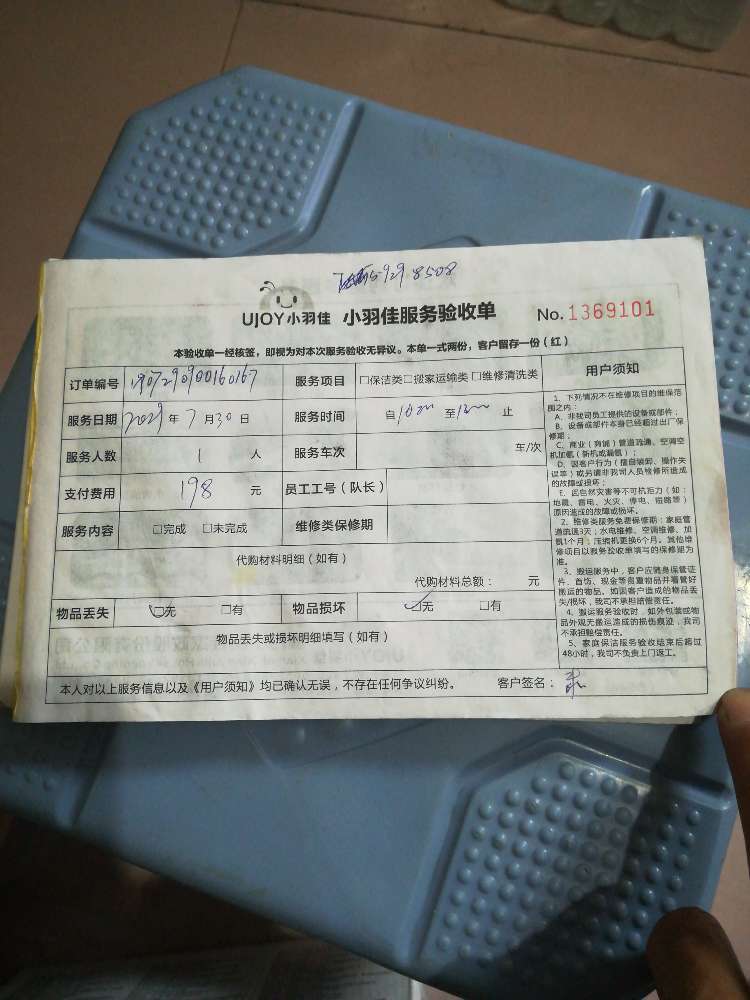 8508
UJOY小羽佳 小羽佳服务验收单 No.1369101
本验收单一经核签，即视为对本次服务验收无异议。本单一式两份，客户留存一份（红）
订单编号 1907290900160167 服务项目 □保洁类□搬家运输类□维修清洗类
服务日期 年 7 月 30 日 服务时间 自 至 止
服务人数 1 人 服务车次 车/次
支付费用 198 元 员工工号（队长）
服务内容 □完成 □未完成 维修类保修期
代购材料明细（如有）
代购材料总额： 元
物品丢失 □无 □有 物品损坏 □无 □有
物品丢失或损坏明细填写（如有）
本人对以上服务信息以及《用户须知》均已确认无误，不存在任何争议纠纷。 客户签名：
用户须知
1、下列情况不在维修项目的维保范
围之内：
A、非我司员工提供的设备或部件；
B、设备或部件本身已经超过出厂保
修期；
C、商业（商铺）管道疏通、空调空
机加氟（新机或漏氟）；
D、因客户行为（擅自装卸、操作失
误等）或另请非我司人员检修所造成
的故障或损坏；
E、因自然灾害等不可抗拒力（如：
地震、雷电、火灾、停电、短路等）
原因造成的故障或损坏。
2、维修类服务免费保修期：家庭管
道疏通3天；水电维修、空调维修、加
氟1个月；压缩机更换6个月。其他维
修项目以服务验收单填写的保修期为
准。
3、搬运服务中，客户应随身保管证
件、首饰、现金等贵重物品并看管好
搬运的物品。如因客户造成的物品丢
失/损坏，我司不承担赔偿责任。
4、搬运服务验收时，如外包装或物
品外观无搬运造成的损伤痕迹，我司
不承担赔偿责任。
5、家庭保洁服务验收结束后超过
48小时，我司不负责上门返工。